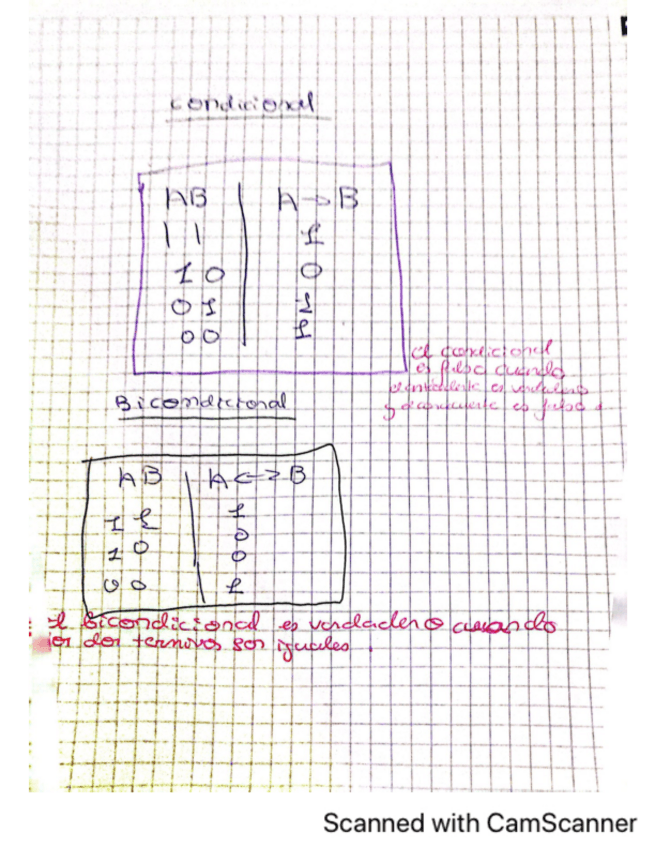 condicional
A B | A → B
1 1 | 1
1 0 | 0
0 1 | 1
0 0 | 1
el condicional
es falso cuando
el antecedente es verdadero
y el consecuente es falso
Bicondicional
A B | A <-> B
1 1 | 1
0
1 0 | 0
0 0 | 1
el bicondicional es verdadero cuando
los dos terminos son iguales.
Scanned with CamScanner